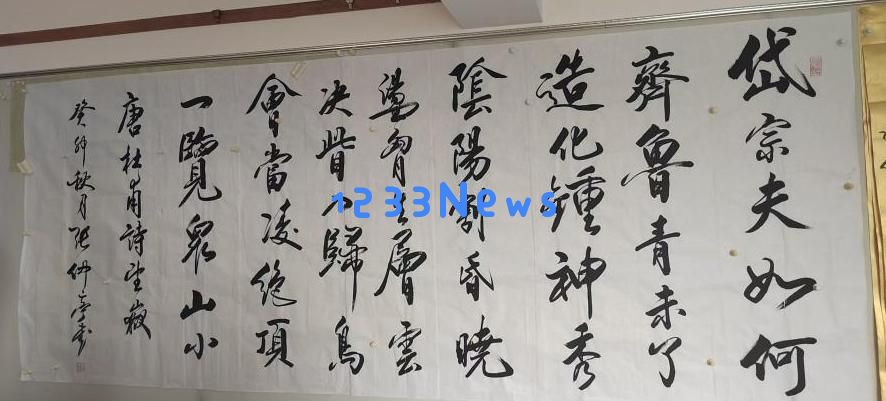 岱宗夫如何
齊魯青未了
造化鍾神秀
陰陽割昏曉
盪胷生層雲
决眥入歸鳥
會當凌絶頂
一覽衆山小
唐杜甫詩望嶽
癸卯秋月張仲亭書
1233News